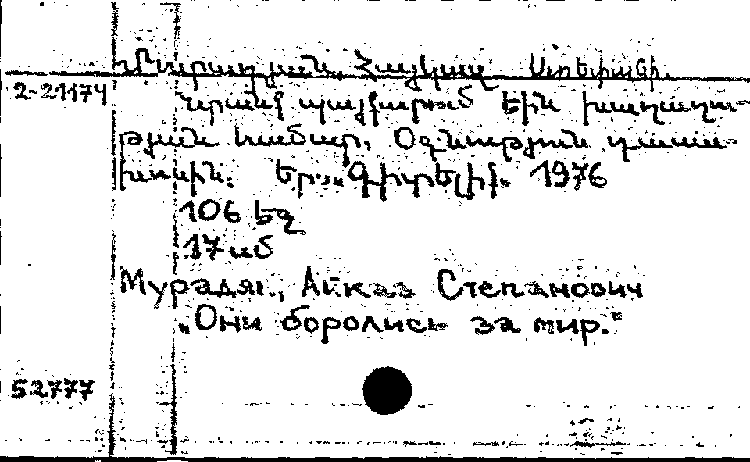 Մուրադյան, Հայկազ Ստեփանի.
2-21174
Նրանք պայքարում էին խաղաղու-
թյան համար. Օգնություն դասա-
խոսին. Եր., „Գիտելիք“ 1976
106 էջ
17 սմ
Мурадян, Айказ Степанович
„Они боролись за мир.“
52777